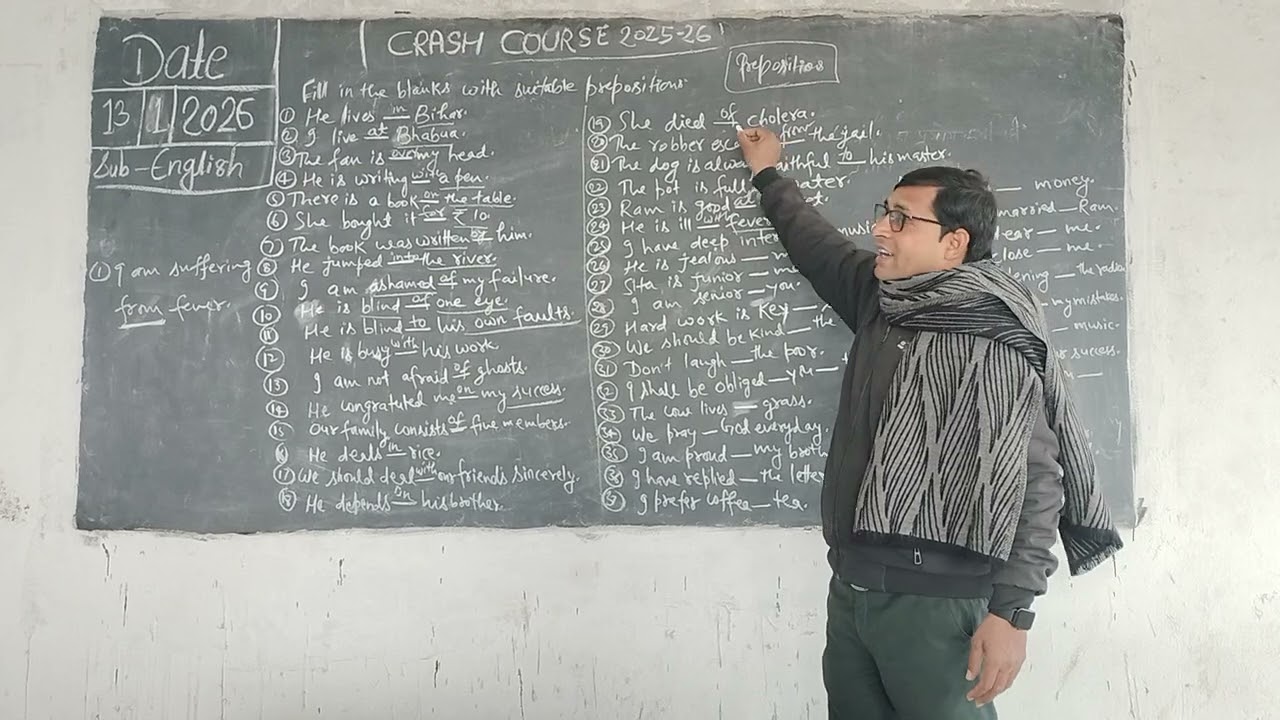 CRASH COURSE 2025-26
Date
13 1 2026
Sub-English
Preposition
Fill in the blanks with suitable prepositions
① He lives in Bihar.
② I live at Bhabua.
③ The fan is over my head.
④ He is writing with a pen.
⑤ There is a book on the table.
⑥ She bought it for ₹ 10.
⑦ The book was written by him.
⑧ He jumped into the river.
⑨ I am ashamed of my failure.
⑩ He is blind of one eye.
⑪ He is blind to his own faults.
⑫ He is busy with his work.
⑬ I am not afraid of ghosts.
⑭ He congratuted me on my success.
⑮ Our family consists of five members.
He deals in rice.
⑰ We should deal with our friends sincerely.
⑱ He depends on his brother.
① I am suffering
from fever.
⑲ She died of cholera.
⑳ The robber from the jail.
㉑ The dog is faithful to his master.
㉒ The pot is full water.
㉓ Ram is good at
㉔ He is ill with fever
㉕ I have deep music
㉖ He is jealous —
㉗ Sita is junior —
㉘ I am senior — you.
㉙ Hard work is key —
㉚ We should be kind — the
㉛ Don't laugh — the poor.
㉜ I shall be obliged — you —
㉝ The cow lives — grass.
㉞ We pray — God everyday.
㉟ I am proud — my
㊱ I have replied — the letter
I prefer coffee — tea.
— money.
married — Ram.
— me.
close — me.
— the radio
— my mistakes.
— music.
success.
—